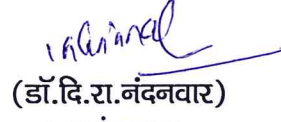 (डॉ.दि.रा.नंदनवार)